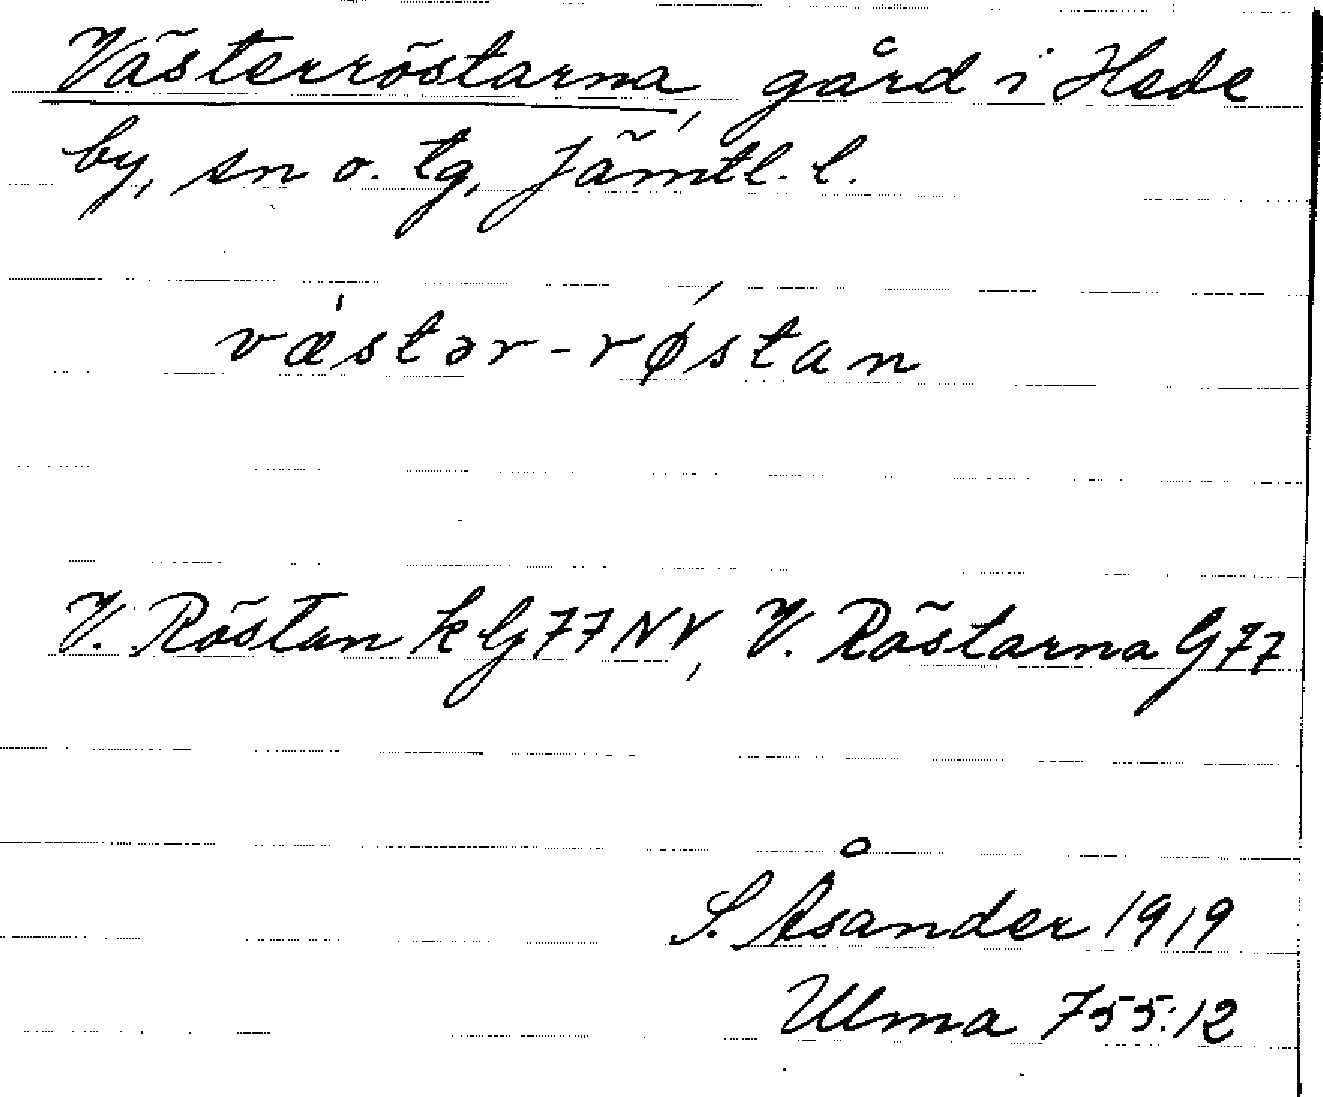 Västerröstarna, gård i Hede
by, sn o. tg, Jämtl. l.
væ̍stər-rǿstan
V. Röstan k G 77 NV, V. Röstarna G 77
S. Åsander 1919
Ulma 755:12